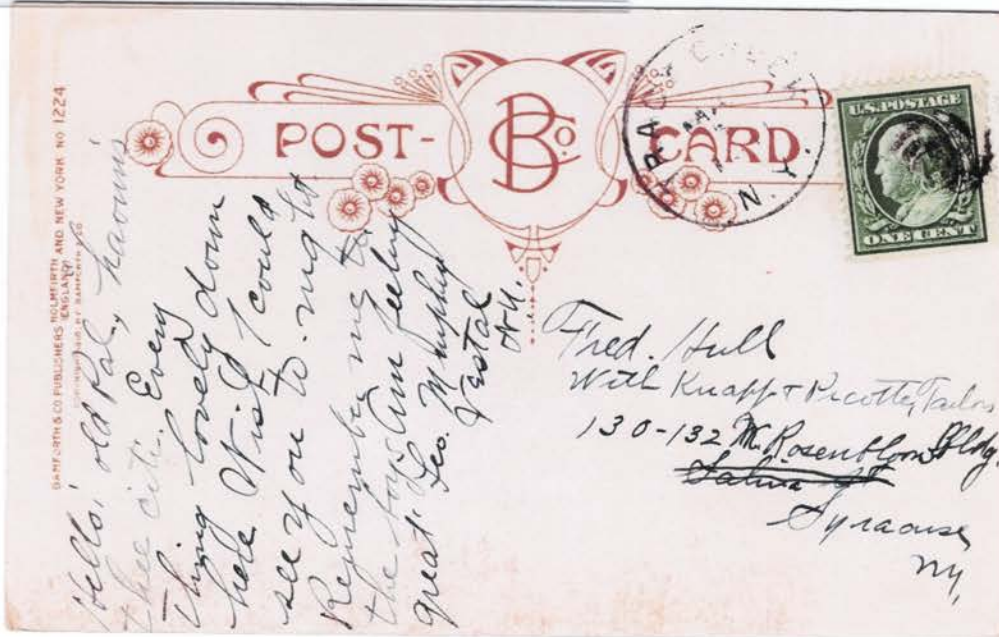 POST-CARD
B Co.
BAMFORTH & CO PUBLISHERS HOLMFIRTH AND NEW YORK NO 1224
(ENGLAND)
COPYRIGHT BY BAMFORTH & CO
N.Y.
U.S. POSTAGE
ONE CENT
Hello, old Pal, how's
the city. Every
thing lovely down
here Wish I could
see you to-night.
Remember me to
the boys Am feeling
great. Leo. Murphy
Vestal
N.Y.
Fred. Hull
With Knapp + Tailors
130-132 M. Rosenbloom Bldg.
Salina St
Syracuse
NY.